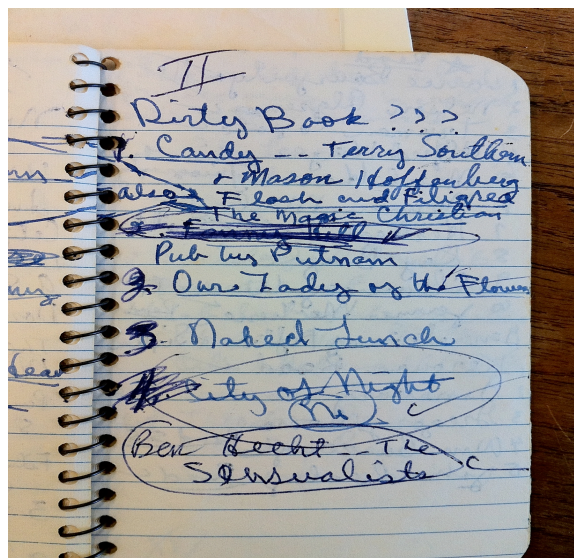 II
Dirty Book ???
1. Candy -- Terry Southern
+ Mason Hoffenberg
also Flash and Filigred
The Magic Christian
2. Fanny Hill
Pub by Putnam
2. Our Lady of the Flowers
3. Naked Lunch
4. City of Night
No C
Ben Hecht -- The C
Sensualists